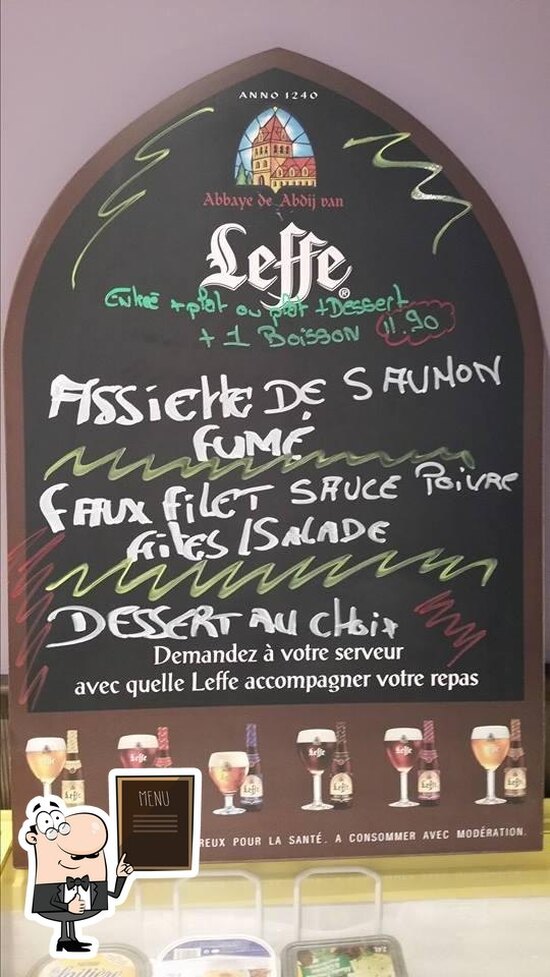 ANNO 1240
Abbaye de Abdij van
Leffe®
Entreé + plat ou plat + Dessert
+ 1 Boisson 11.90
ASSIETTE DE SAUMON
FUMÉ
FAUX FILET SAUCE POIVRE
FRITES / SALADE
DESSERT AU CHOIX
Demandez à votre serveur
avec quelle Leffe accompagner votre repas
Leffe Leffe Leffe Leffe Leffe Leffe
MENU
REUX POUR LA SANTÉ. A CONSOMMER AVEC MODÉRATION.
Laitière